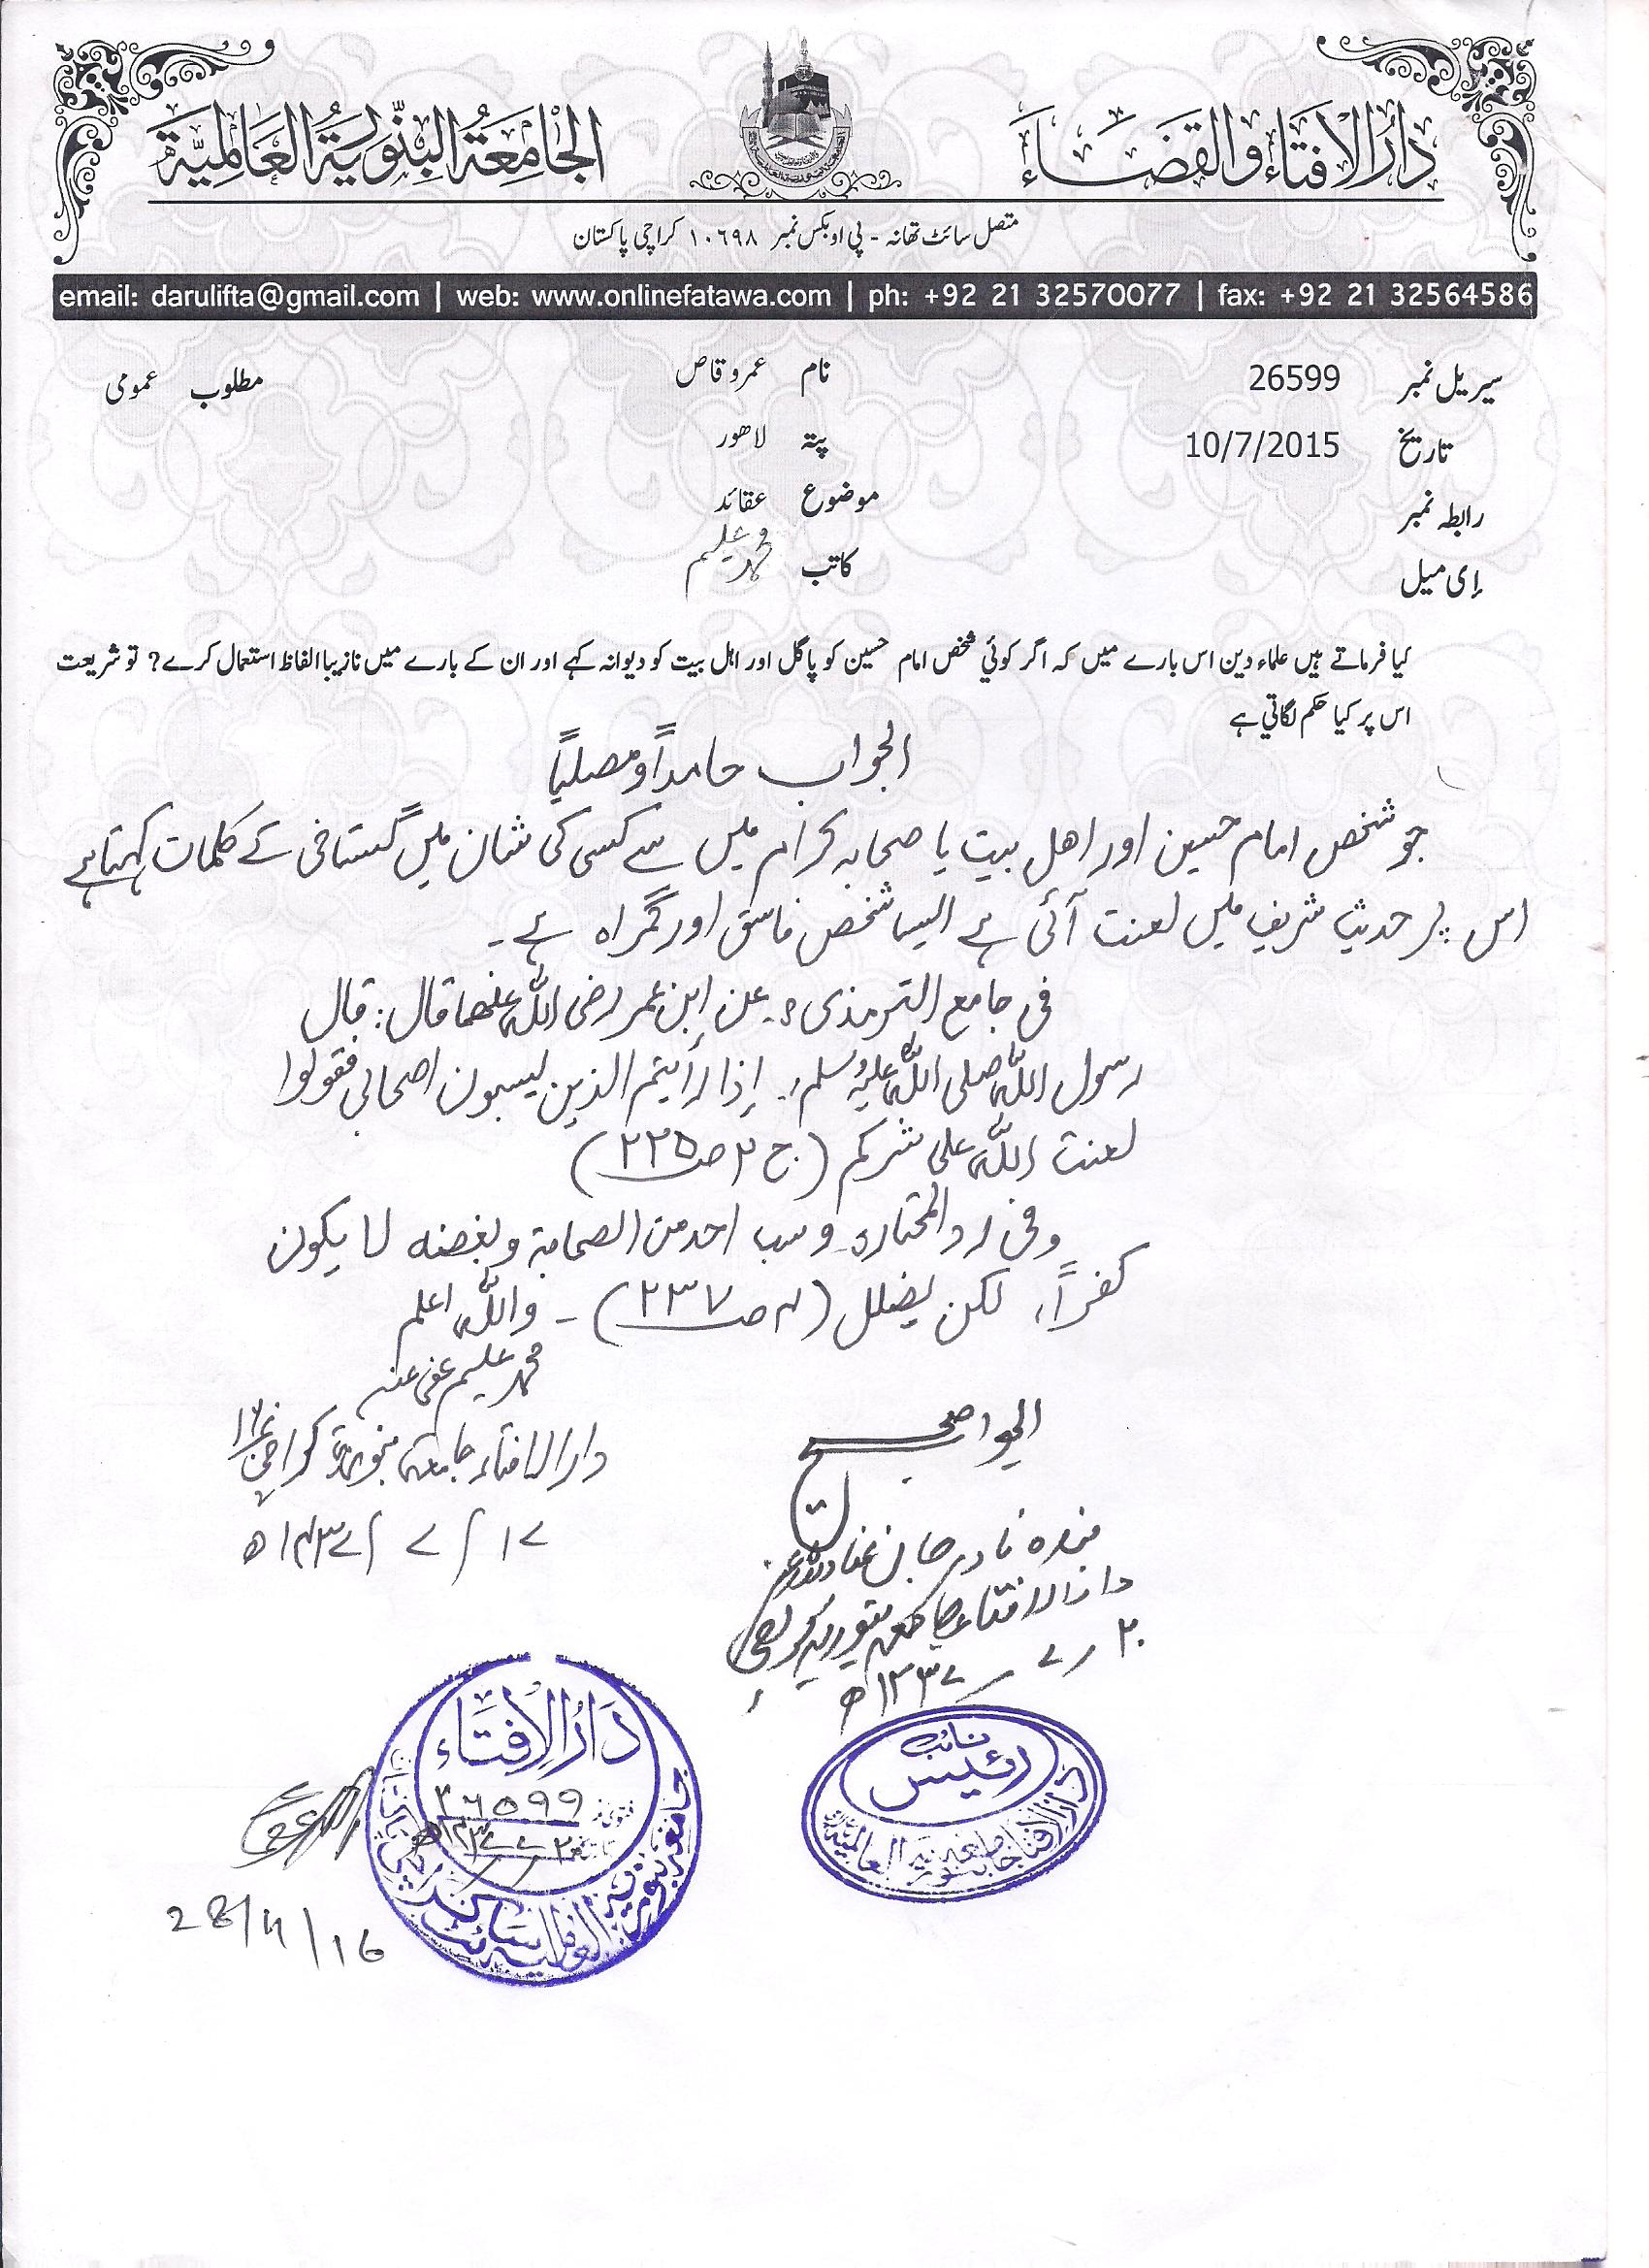 دارالافتاء والقضاء
الجامعة البنورية العالمية
متصل سائٹ تھانہ - پی او بکس نمبر ۱۰۶۹۸ کراچی پاکستان
email: darulifta@gmail.com | web: www.onlinefatawa.com | ph: +92 21 32570077 | fax: +92 21 32564586
سیریل نمبر 26599 نام عمر وقاص مطلوب عمومی
تاریخ 10/7/2015 پتہ لاھور
رابطہ نمبر موضوع عقائد
ای میل کاتب محمد علیم
کیا فرماتے ہیں علماء دین اس بارے میں کہ اگر کوئي شخص امام حسین کو پاگل اور اہل بیت کو دیوانہ کہے اور ان کے بارے میں نازیبا الفاظ استعمال کرے؟ تو شریعت
اس پر کیا حکم لگاتي ہے
الجواب حامداً ومصلیاً
جو شخص امام حسین اور اھل بیت یا صحابہ کرام میں سے کسی کی شان میں گستاخی کے کلمات کہتا ہے
اس پر حدیث شریف میں لعنت آئی ہے ایسا شخص فاسق اور گمراہ ہے۔
فی جامع الترمذی: عن ابن عمر رضی اللہ عنھما قال: قال
رسول اللہ صلی اللہ علیہ وسلم: إذا رأیتم الذین یسبون اصحابی فقولوا
لعنت اللہ علی شرکم (ج ۲ ص ۲۲۵)
وفی رد المختار: وسب احد من الصحابة وبغضه لا یکون
کفراً، لکن یضلل (۴ ص ۲۳۷) ۔ واللہ اعلم
محمد علیم عفی عنہ
دارالافتاء جامعہ بنوریہ کراچی ۱۶
۱۷ / ۷ / ۱۴۳۷ھ
الجواب صحیح
بندہ نادر جان عفا اللہ عنہ
دارالافتاء جامعہ بنوریہ کراچی
۲۰ / ۷ / ۱۴۳۷ھ
نائب
رئیس
دارالافتاء جامعہ بنوریہ العالمیة
دارالافتاء
فتوی نمبر ۲۶۵۹۹
تاریخ ۲۰ / ۷ / ۱۴۳۷ھ
جامعہ بنوریہ العالمیہ سائٹ کراچی
28/4/16